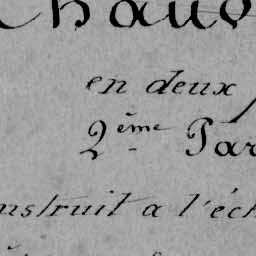 Chaud
en deux p
2ème Par
nstruit a l'éch